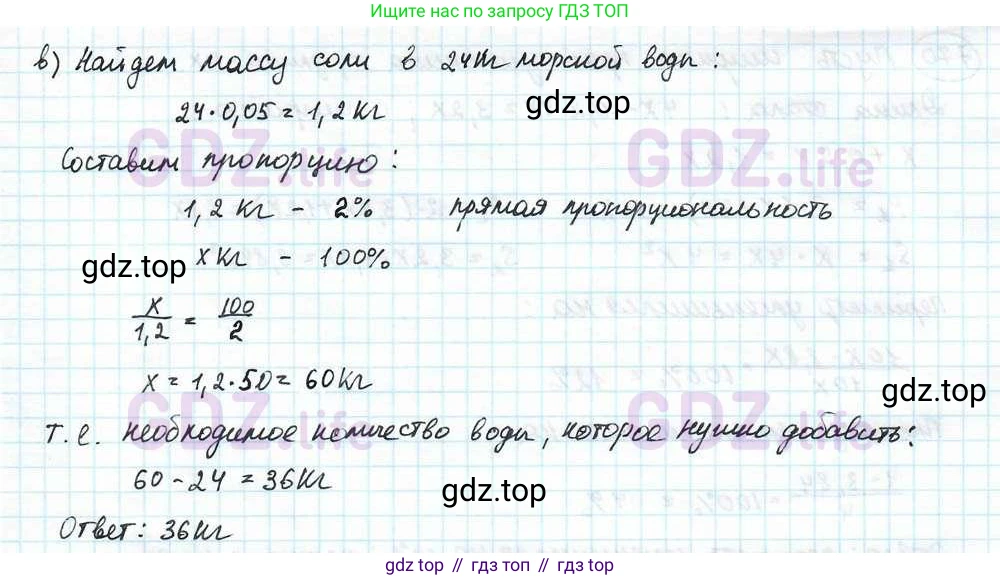 Ищите нас по запросу ГДЗ ТОП
в) Найдем массу соли в 24кг морской воды:
24·0,05=1,2кг
gdz.top
Составим пропорцию:
GDZ.life GDZ.life
1,2 кг - 2% прямая пропорциональность
x кг - 100%
gdz.top
x/1,2 = 100/2
x = 1,2·50= 60кг
gdz.top
GDZ.life GDZ.life
т.е. необходимое количество воды, которое нужно добавить:
60-24=36кг
gdz.top
Ответ: 36кг
gdz.top // гдз.топ // gdz.top